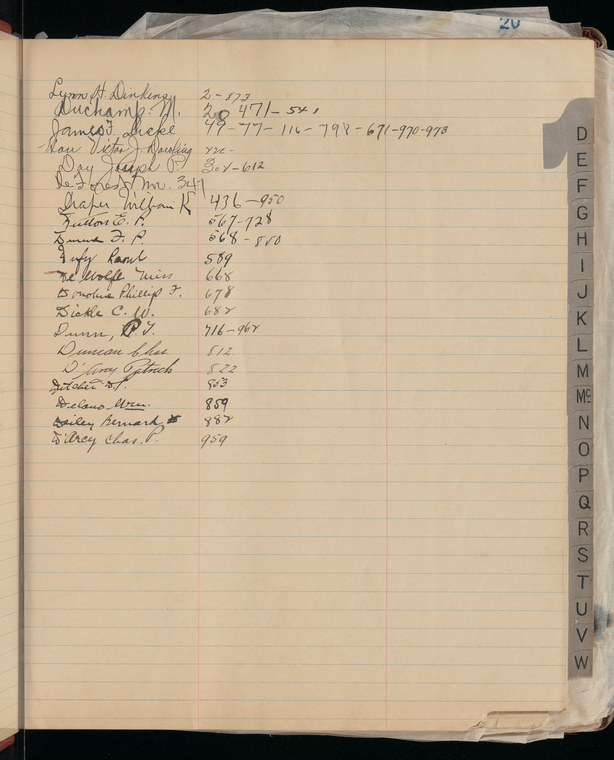 20
Lynn H. Dinkins 2-873
Duchamp. M. 28 471-541
James F. 49-77-116-798-671-970-973
Hon Victor J. Dowling
Day Joseph P. 304-612
De Forest Mr. 347
Draper William K 436-950
E. P. 567-728
F. P. 568-800
Dufy Raoul 589
De Wolfe Miss 668
Donohue Phillip F. 678
Dickle C. W. 682
Dunn, P J. 716-962
Duncan Chas 812
D'Amy Patrick 822
853
Delano Wm. 859
Dailey Bernard 882
D'Arcy Chas. P. 959
D
E
F
G
H
I
J
K
L
M
Mc
N
O
P
Q
R
S
T
U
V
W